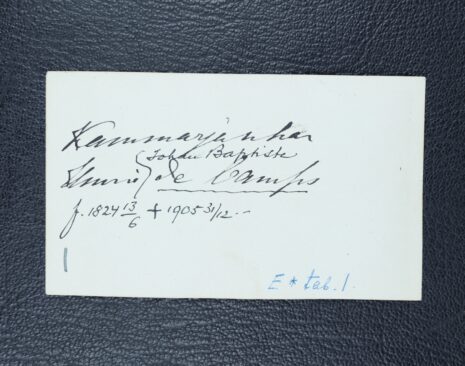 Kammarjunkar
Johan Baptiste
Henric de Camps
f. 1824 13/6 + 1905 31/12.–
E * tab. 1.